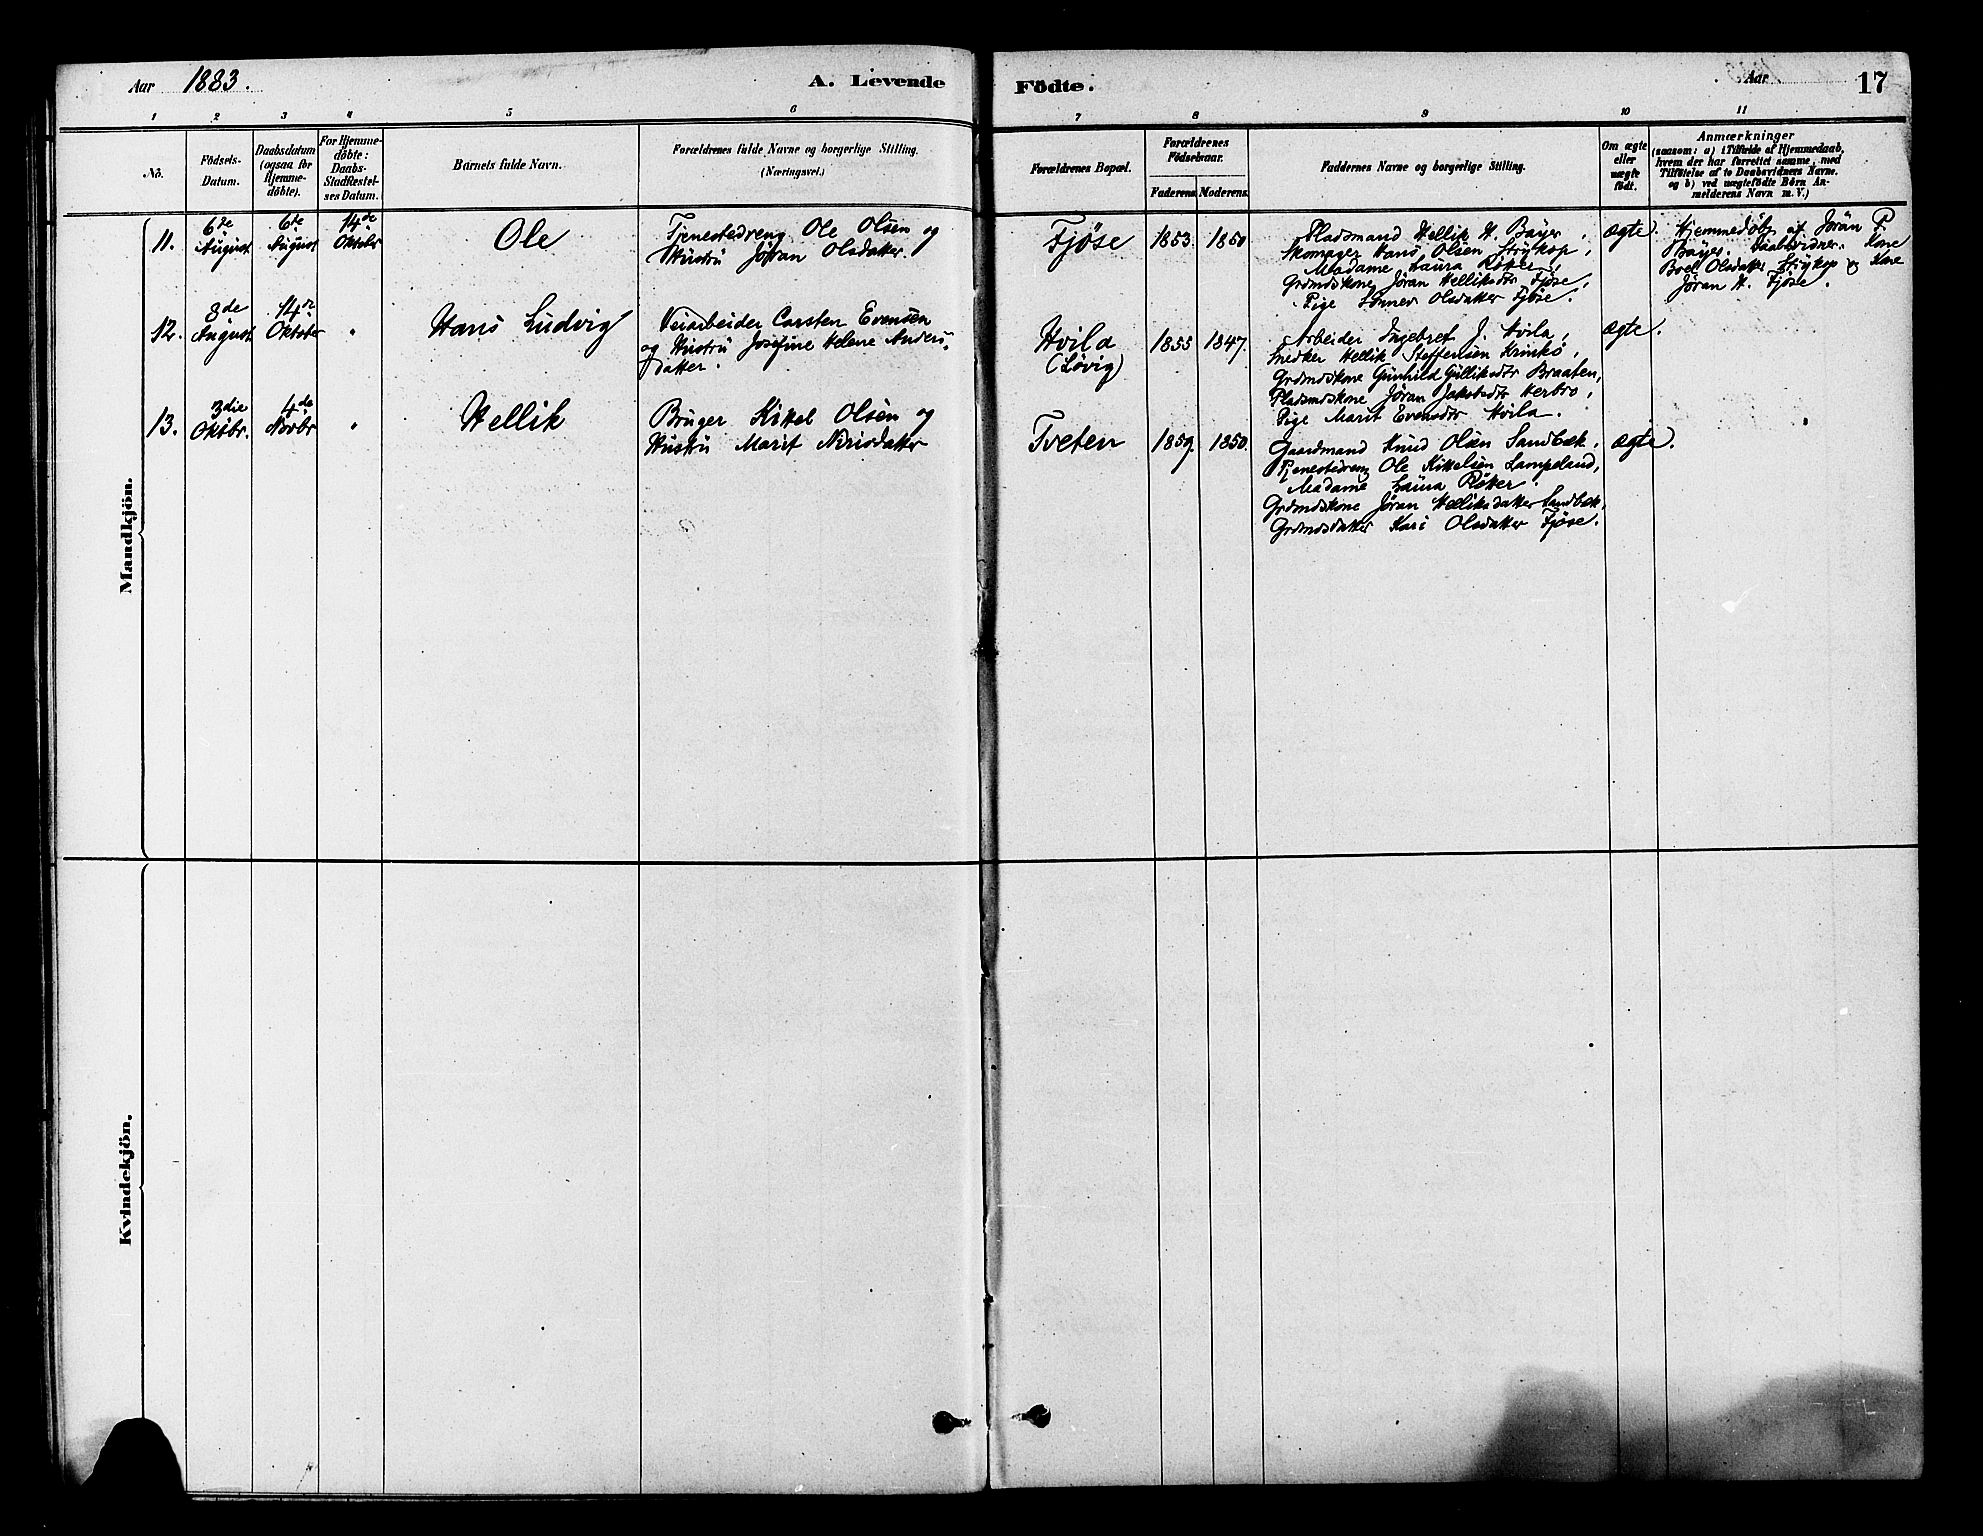 Aar 1883.
A. Levende
Födte.
Aar
17
1
2
3
4
5
6
7
8
9
10
11
No.
Födsels-
Datum.
Daabsdatum
(ogsaa for
Hjemme-
döbte).
For Hjemme-
döbte:
Daabs-
Stadfæstel-
ses Datum.
Barnets fulde Navn.
Forældrenes fulde Navne og borgerlige Stilling.
(Næringsvei.)
Forældrenes Bopæl.
Forældrenes
Födselsaar.
Faderens.
Moderens.
Faddernes Navne og borgerlige Stilling.
Om ægte
eller
uægte
födt.
Anmærkninger
(saasom: a) i Tilfælde af Hjemmedaab,
hvem der har forrettet samme, med
Tilföielse af to Daabsvidners Navne.
og b) ved uægtefödte Börn An-
melderens Navn m. V.)
Mandkjön.
11.
6te
August
6te
August
14de
Oktobr
Ole
Tjenestedreng Ole Olsen og
Hustru Jøran Olsdatter.
Fjøse
1853.
1850
Pladsmand Hellik H. Bayer,
Skomager Hans Olsen Strykop,
Madame Laura Røker,
Grdmdskone Jøran Helliksdtr Fjøse,
Pige Olsdatter Fjøse.
ægte.
Hjemmedøbt af Jøran P.
Bayer. Daabsvidner: Kone
Olsdatter Strykop og Kone
Jøran H. Fjøse.
12.
8de
August
14de
Oktober
"
Hans Ludvig
Veiarbeider Carsten Evensen
og Hustru Josefine Helene Anders-
datter.
Hvila
(Løvig)
1855
1847.
Arbeider Ingebret J. Hvila,
Snedker Hellik Steffensen
Grdmdskone Gunhild Gulliksdtr Braaten,
Pladsmdskone Jøran Jakobsdtr Kerbro,
Pige Marit Evensdtr Hvila.
ægte.
13.
3die
Oktbr.
4de
Novbr
"
Hellik
Bruger Kittel Olsen og
Hustru Marit Nirisdatter
Tveten
1859.
1850.
Gaardmand Knud Olsen Sandbæk.
Tjenestedreng Ole Kittelsen Lampeland,
Madame Laura Røker.
Grdmdskone Jøran Helliksdatter Sandbæk,
Grdmdsdatter Kari Olsdatter Fjøse.
ægte.
Kvindekjön.